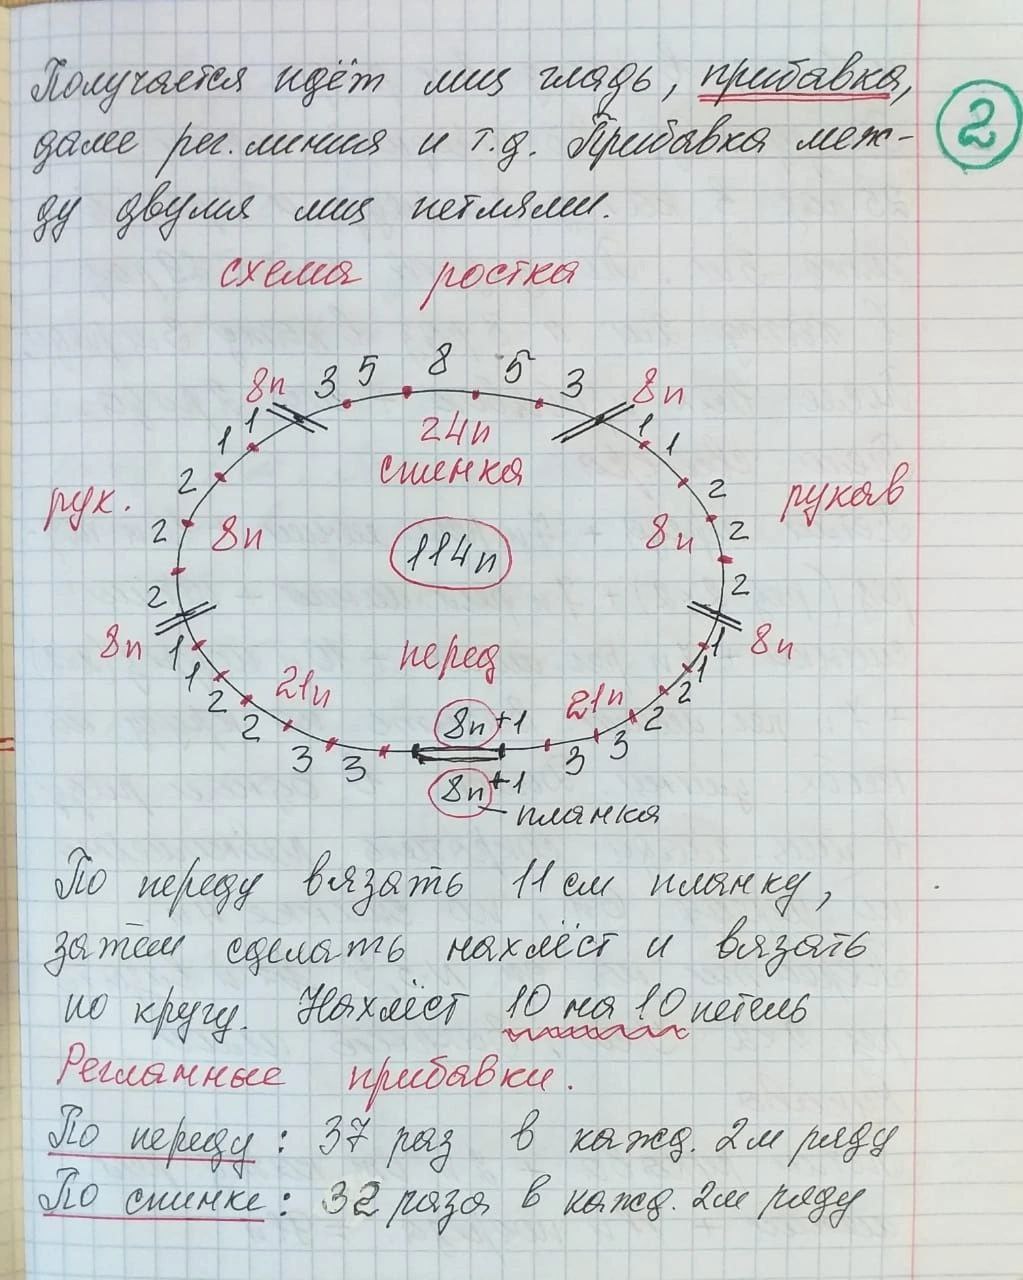 Получается идёт лиц гладь, прибавка,
далее рег. линия и т.д. Прибавка меж-
ду двумя лиц петлями.
2
схема ростка
8п 3 5 8 5 3 8п
1 1 24п 1 1
рук. 2 спинка 2 рукав
2 8п 114п 8п 2
2 2
8п 1 перед 1 8п
1 21п 21п 1
2 2
2 8п+1 2
3 3 3 3
8п+1
планка
По переду вязать 11 см планку,
затем сделать нахлёст и вязать
по кругу. Нахлёст 10 на 10 петель
Регланные прибавки.
По переду: 37 раз в кажд. 2м ряду
По спинке: 32 раза в кажд. 2м ряду